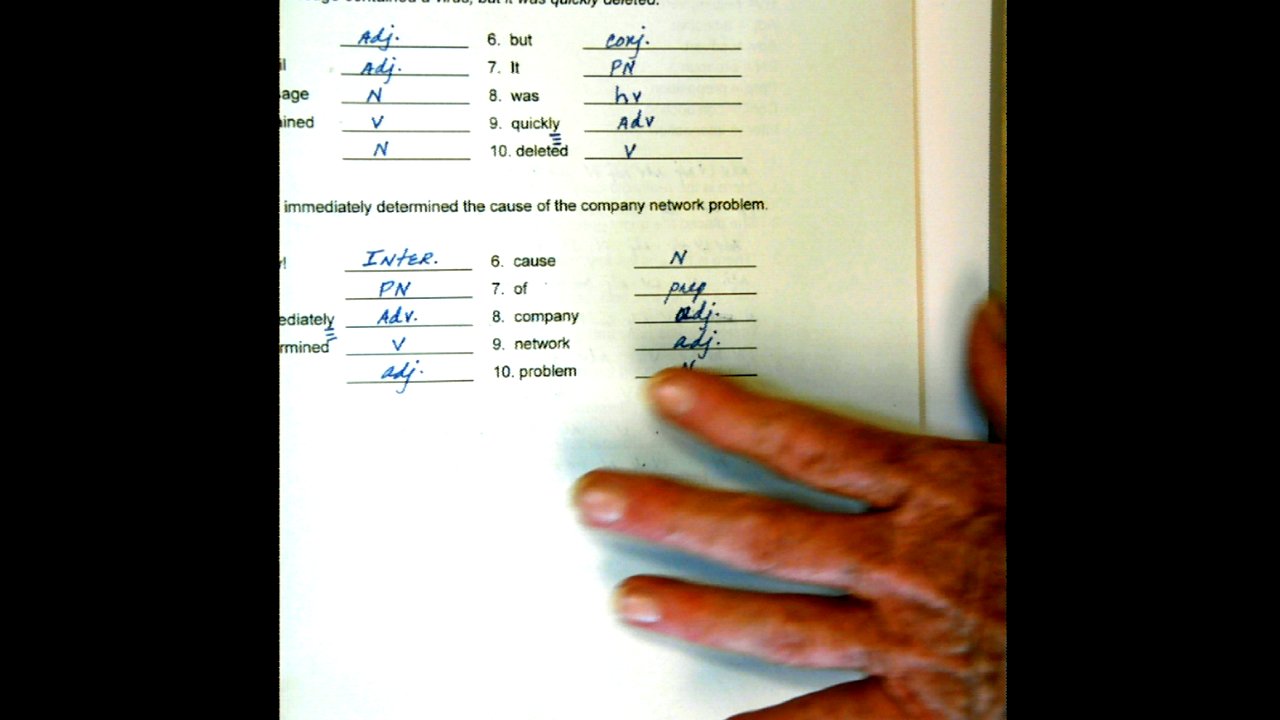 contained a virus, but it was quickly deleted.
Adj. 6. but conj.
il Adj. 7. It PN
age N 8. was hv
ained V 9. quickly Adv
N 10. deleted V
immediately determined the cause of the company network problem.
y! INTER. 6. cause N
PN 7. of prep
ediately Adv. 8. company adj.
rmined V 9. network adj.
adj. 10. problem N